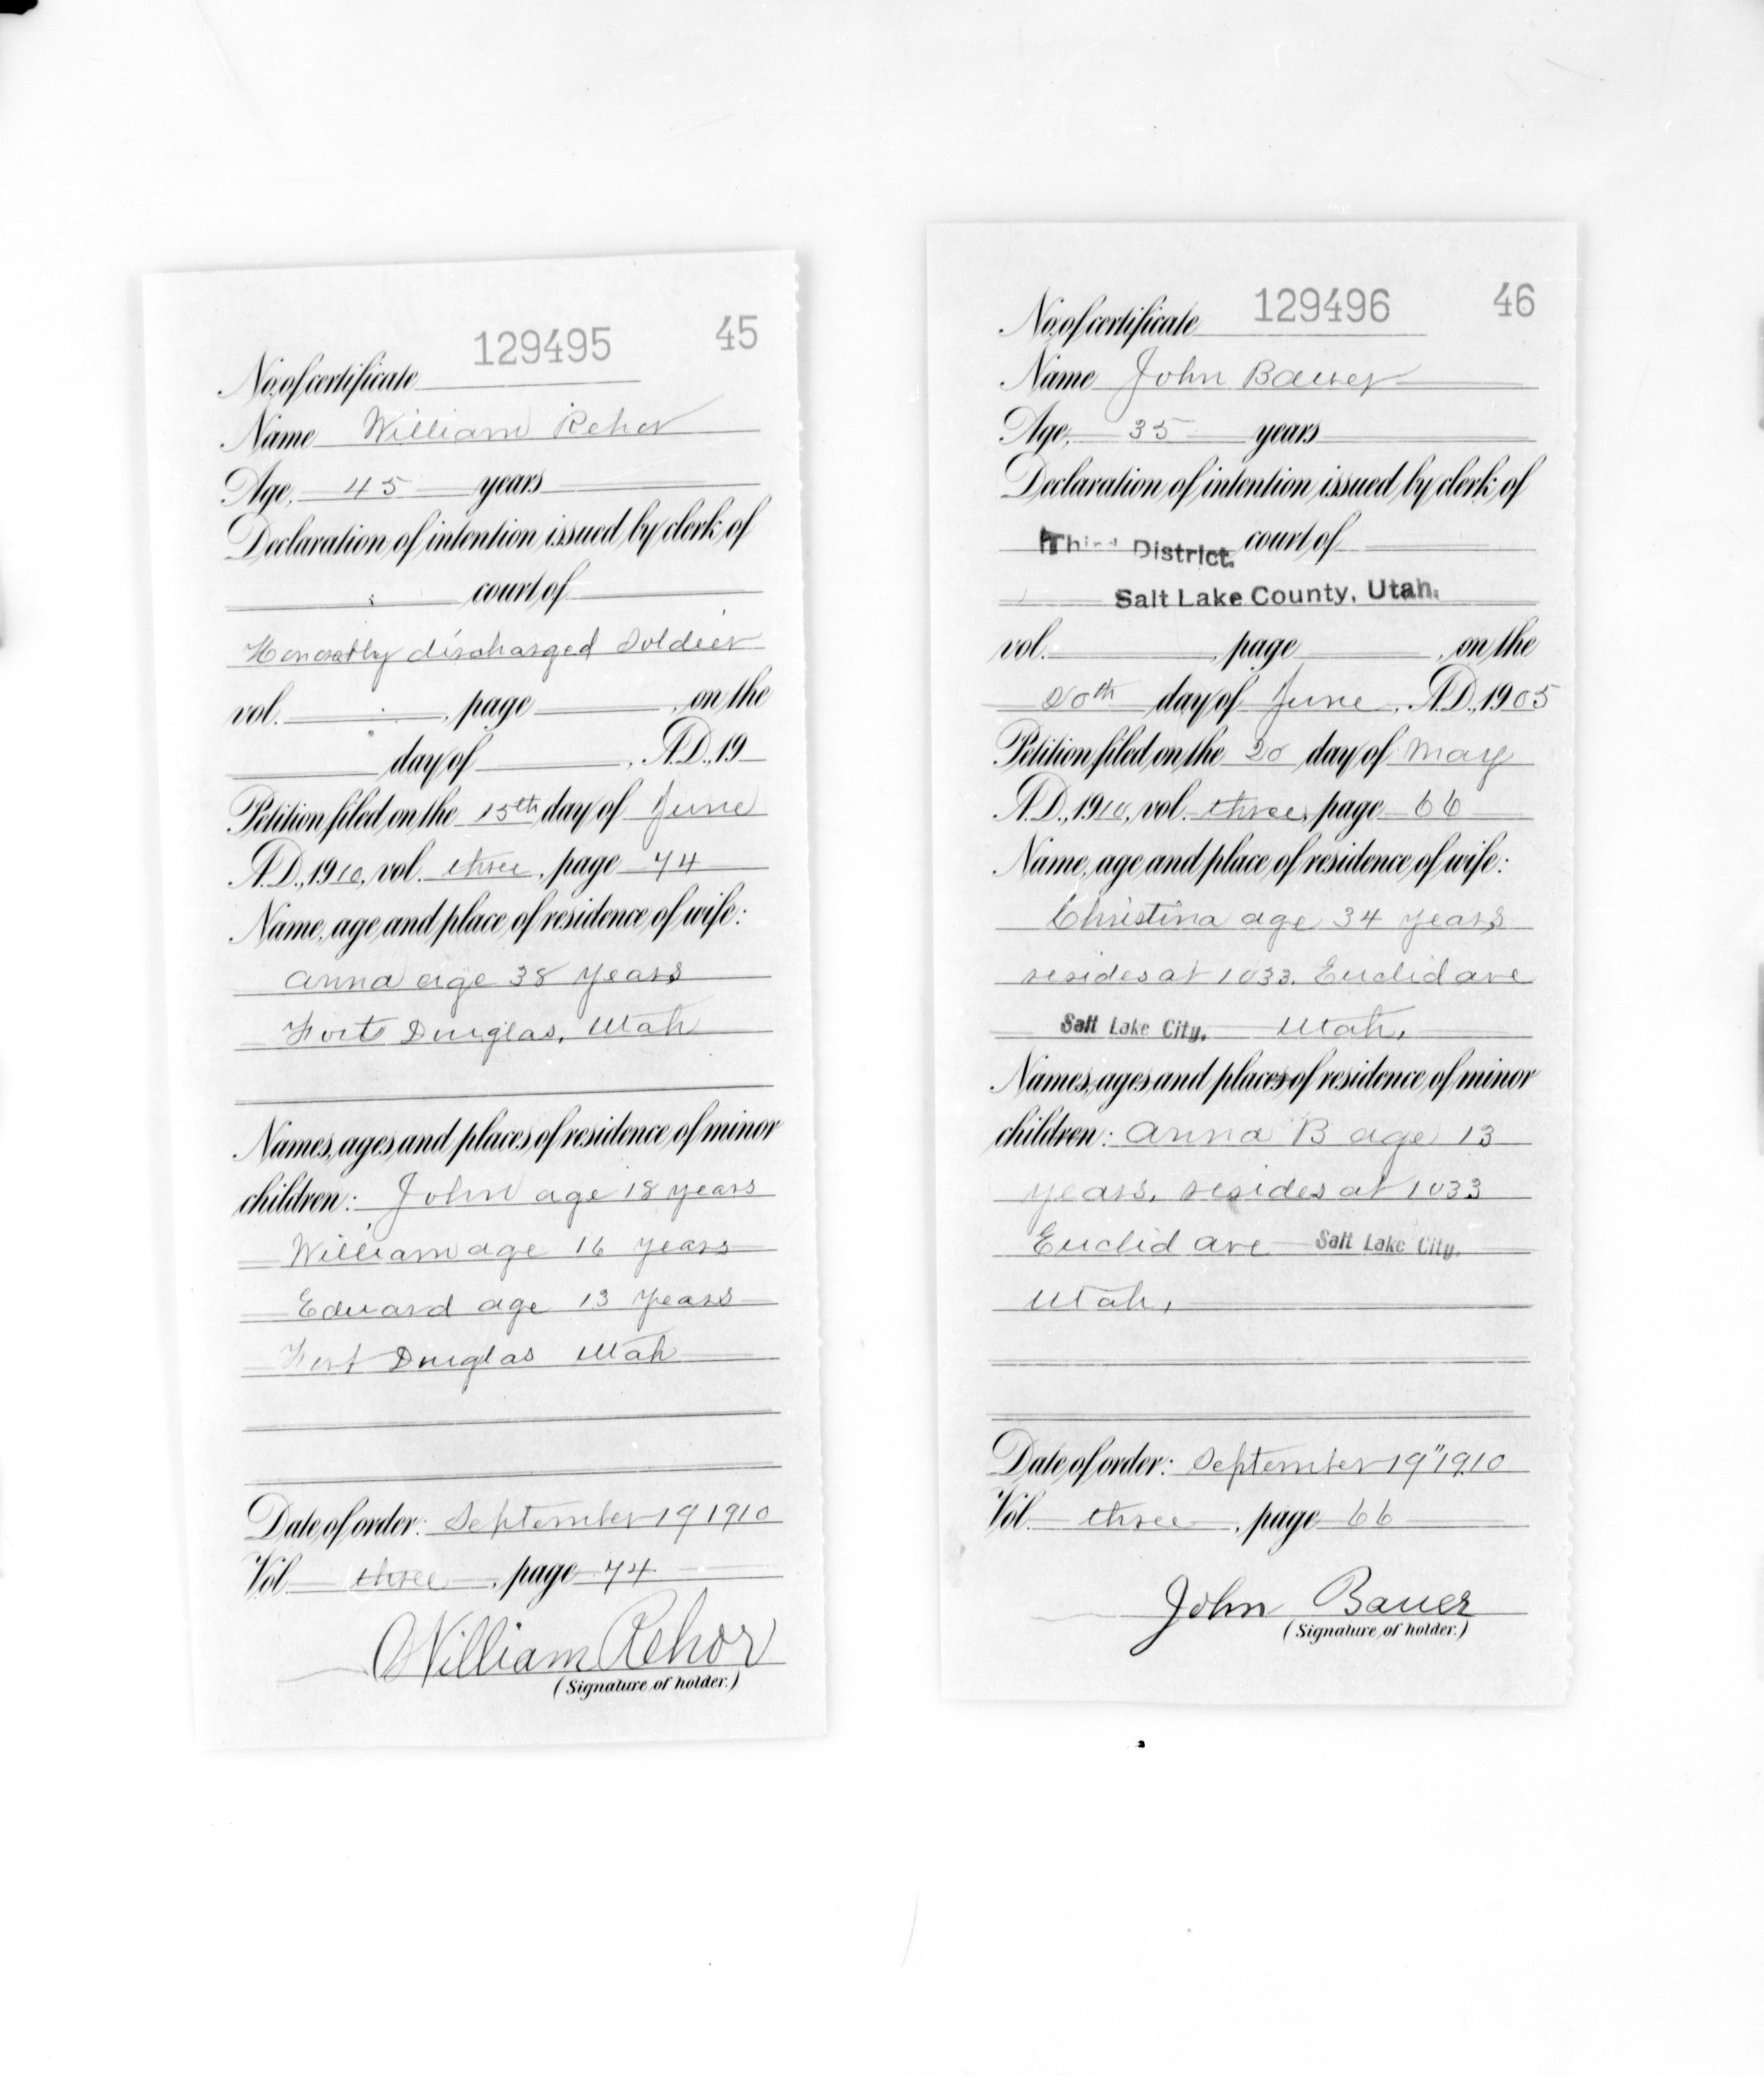 129495 45
No. of certificate
Name William Rehor
Age, 45 years
Declaration of intention issued by clerk of
court of
Honorably discharged Soldier
vol. , page , on the
day of , A.D., 19
Petition filed on the 15th day of June
A.D., 1910, vol. three, page 74
Name, age and place of residence of wife:
Anna age 38 years
Fort Douglas, Utah
Names, ages and places of residence of minor
children: John age 18 years
William age 16 years
Eduard age 13 years
Fort Douglas Utah
Date of order: September 19 1910
Vol. three, page 74
William Rehor
(Signature of holder.)
129496 46
No. of certificate
Name John Bauer
Age, 35 years
Declaration of intention issued by clerk of
Third District. court of
Salt Lake County, Utah.
vol. , page , on the
day of June, A.D., 1905
Petition filed on the 20 day of May
A.D., 1910, vol. three, page 66
Name, age and place of residence of wife:
Christina age 34 years
resides at 1033. Euclid ave
Salt Lake City, Utah,
Names, ages and places of residence of minor
children: Anna B age 13
years, resides at 1033
Euclid ave Salt Lake City,
Utah,
Date of order: September 19" 1910
Vol. three, page 66
John Bauer
(Signature of holder.)